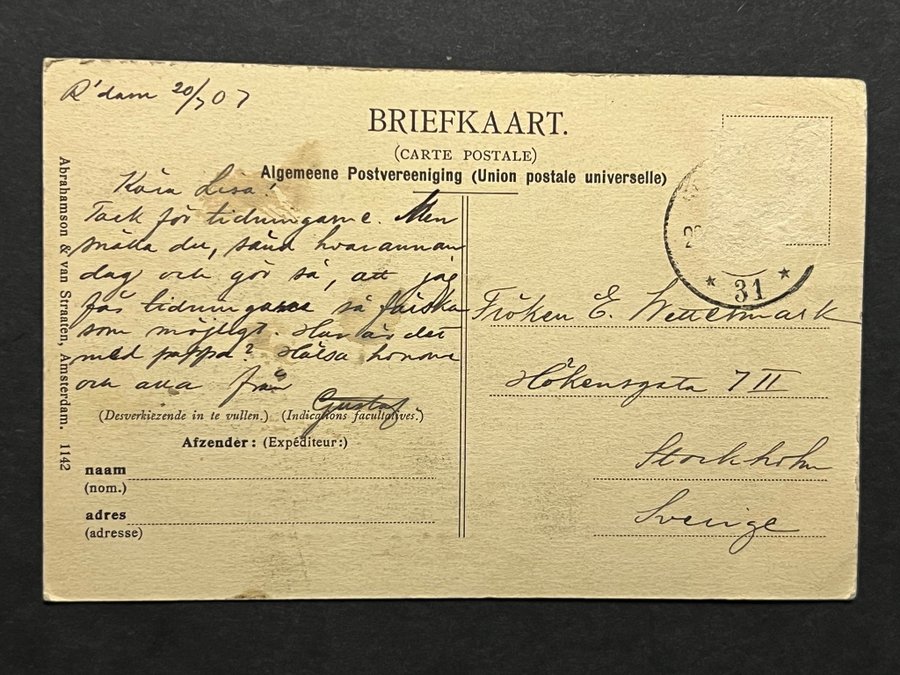 R'dam 20/7 07
BRIEFKAART.
(CARTE POSTALE)
Algemeene Postvereeniging (Union postale universelle)
Abrahamson & van Straaten, Amsterdam. 1142
Kära Lisa!
Tack för tidningarne. Men
snälla du, sänd hvarannan
dag och gör så, att jag
får tidningarne så färska
som möjligt. Hur är det
med pappa? Hälsa honom
och alla från
Gustaf
(Desverkiezende in te vullen.) (Indications facultatives.)
Afzender: (Expéditeur:)
naam
(nom.)
adres
(adresse)
31
Fröken E. Wettermark
Hökensgata 7 II
Stockholm
Sverige